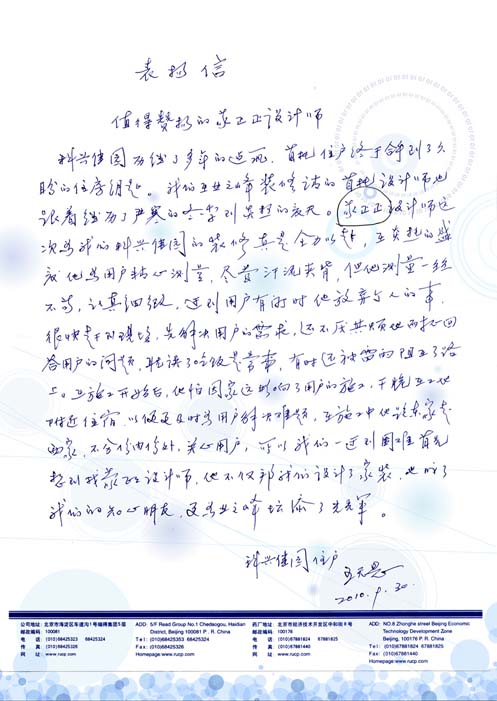 表扬信
值得赞扬的蒙正正设计师
科兴佳园历线了多年的 首批住户终于拿到了久
盼的住房钥匙。我们业之峰装修 的首批设计师也
跟着经历了严寒的冬季到炎热的夏天。蒙正正设计师这
次为我们科兴佳园的装修真是全力以赴,在炎热的盛
夏他为用户精心测量,尽管汗流夹背,但他测量一丝
不苟,认真细致,遇到用户有询时他放弃个人的事,
很快赶到现场,先解决用户的需求,还不厌其烦地
答用户的问题,耽误了吃饭是常事,有时还被雷雨阻在了路
上。在施工开始后,他怕回家远影响了用户的施工,干脆在工地
附近住宿,以便及时为用户解决难题,在施工中他跑东家走
西家,不分份内份外,关心用户,所以我们一遇到困难首先
想到找蒙正正设计师,他不仅帮我们设计了家装,也成了
我们的知心朋友,更为业之峰增添了光彩。
科兴佳园住户
2010.9.30.
公司地址: 北京市海淀区车道沟1号福得集团5层
邮政编码: 100081
电 话: (010) 68425323 68425324
传 真: (010) 68425326
网 址: www.rucp.com
ADD: 5/F Read Group No.1 Chedaogou, Haidian
District, Beijing 100081 P . R. China
Tel: (010)68425353 68425324
Fax: (010)68425326
Homepage:www.rucp.com
药厂地址: 北京市经济技术开发区中和街8号
邮政编码: 100176
电 话: (010)67881824 67881825
传 真: (010)67881440
网 址: www.rucp.com
ADD: NO.8 Zhonghe street Beijing Economic
Technology Development Zone
Beijing, 100176 P. R. China
Tel:(010)67881824 67881825
Fax:(010)67881440
Homepage:www.rucp.com